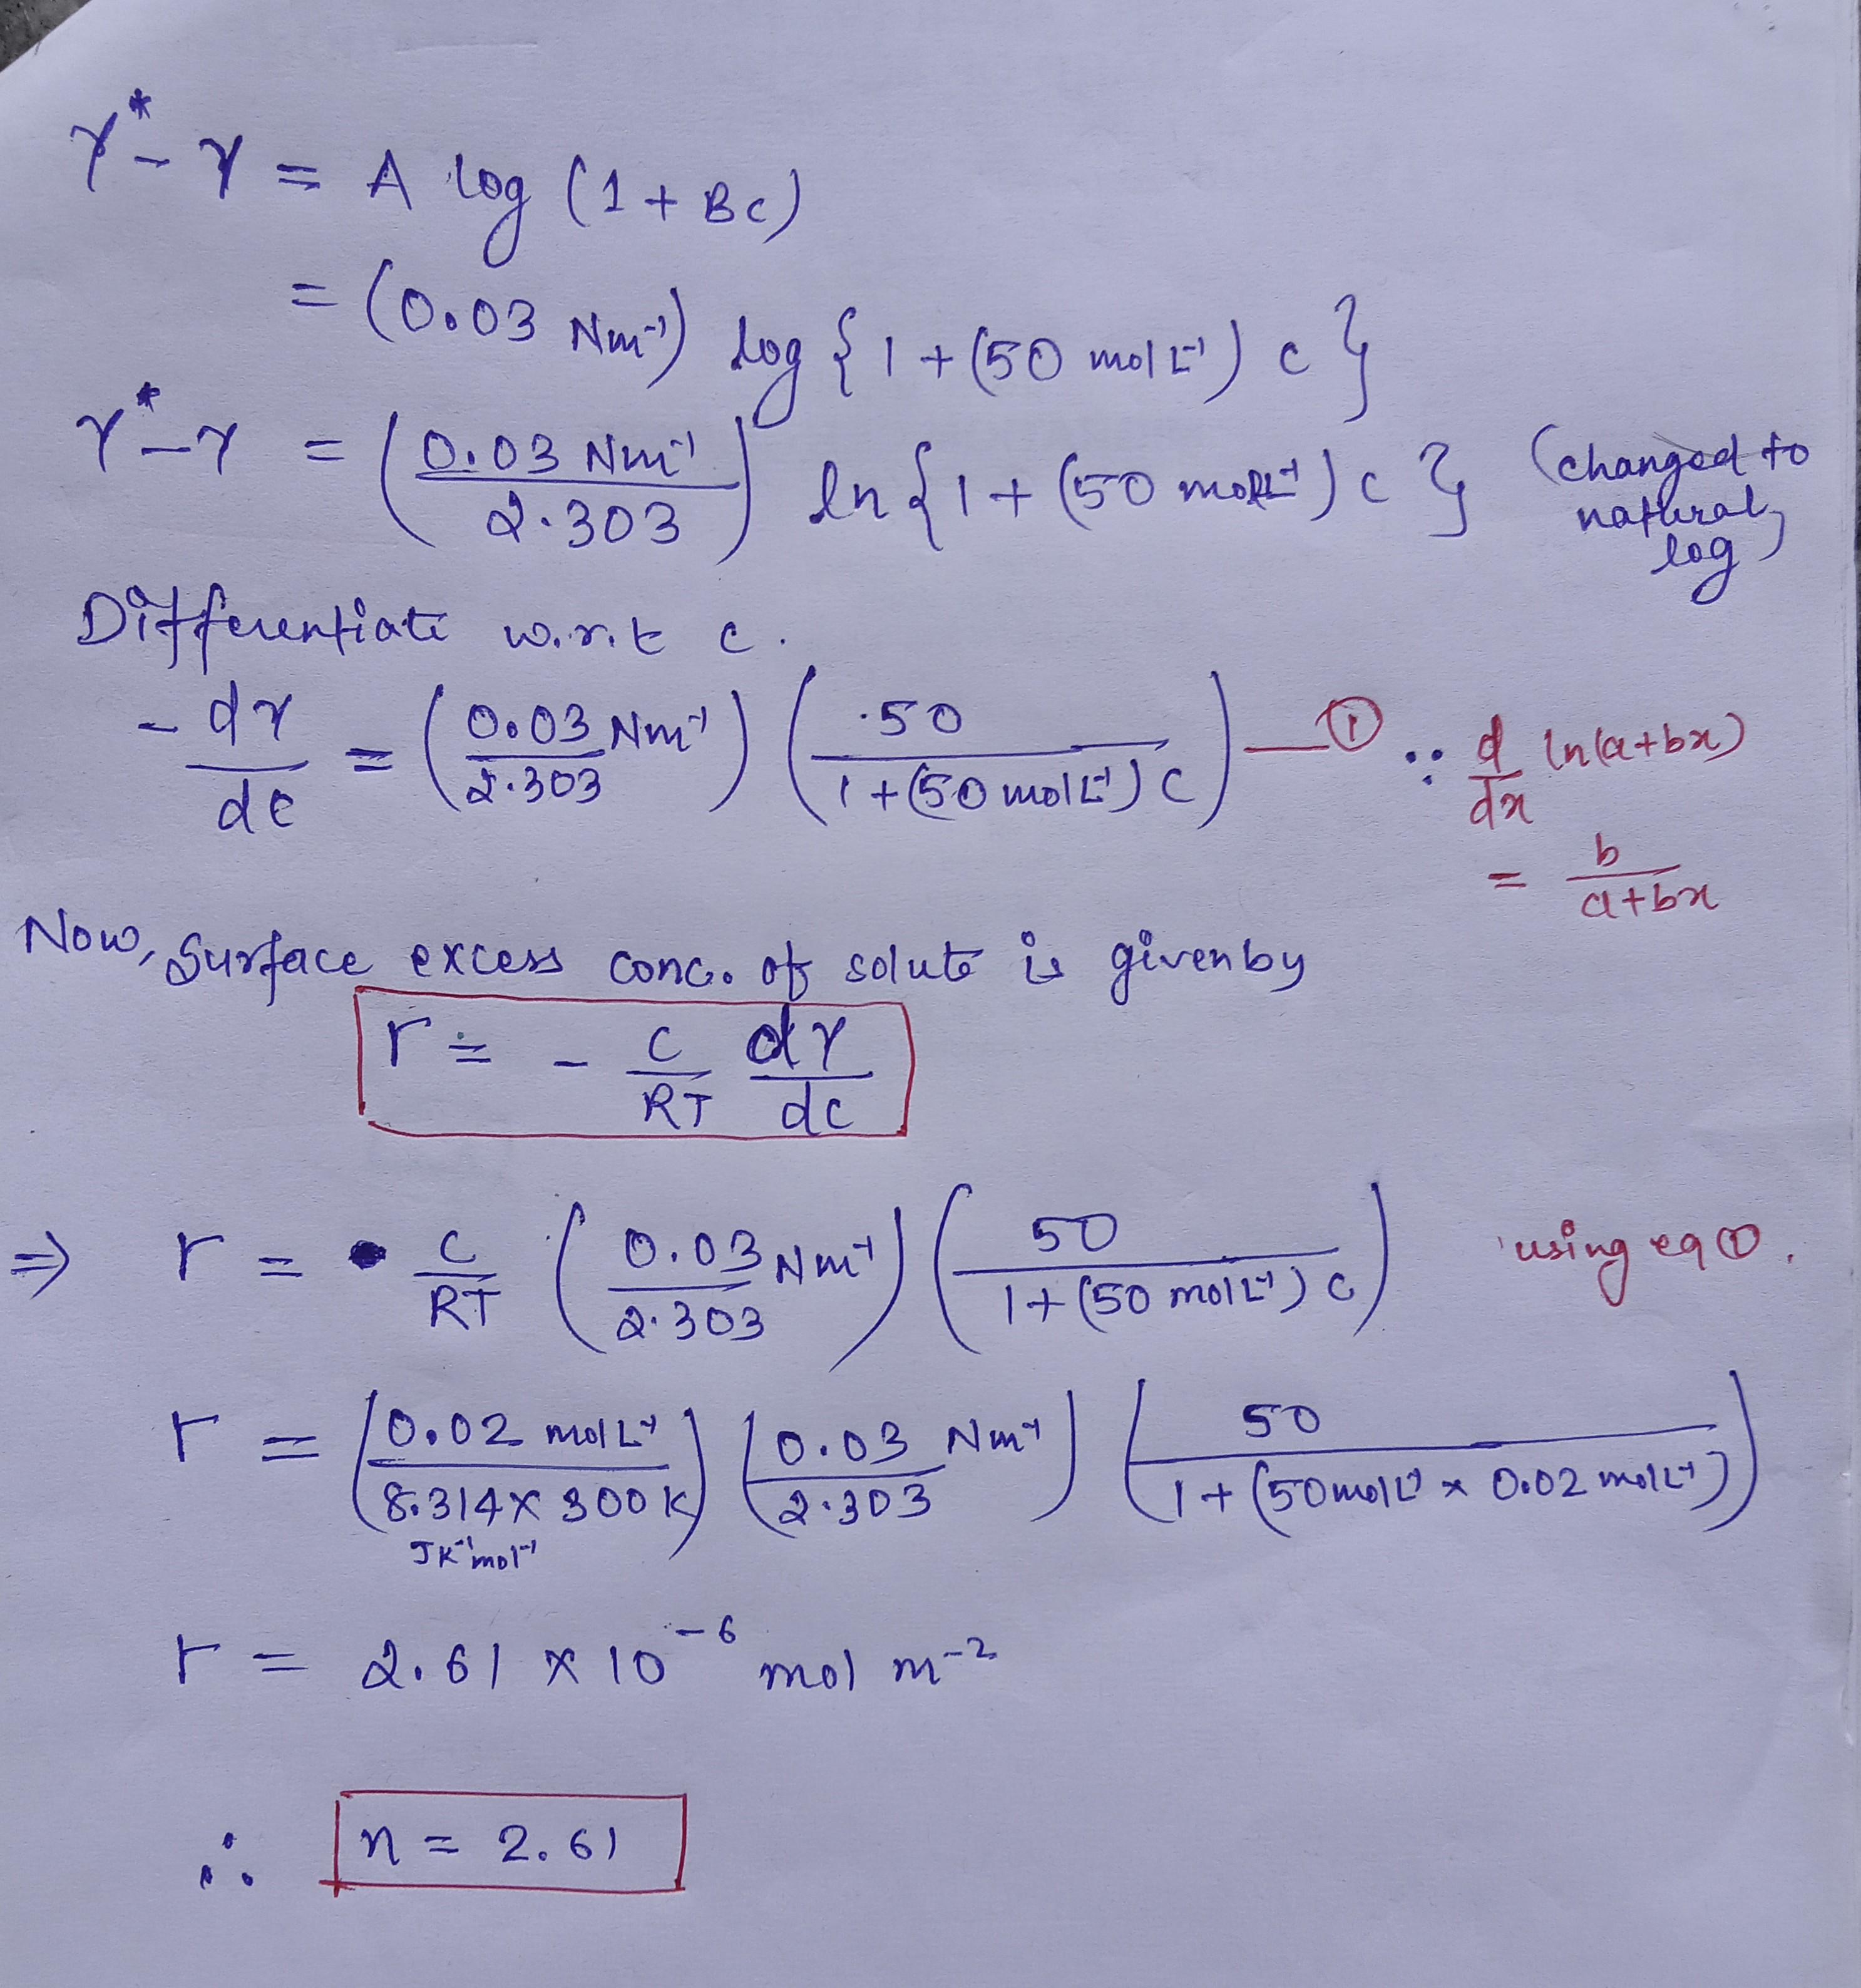 γ* - γ = A log (1 + Bc)
= (0.03 Nm⁻¹) log { 1 + (50 mol L⁻¹) c }
γ* - γ = (0.03 Nm⁻¹ / 2.303) ln { 1 + (50 mol L⁻¹) c } (changed to natural log)
Differentiate w.r.t c.
- dγ/dc = (0.03 Nm⁻¹ / 2.303) (50 / 1 + (50 mol L⁻¹) c) — ① ∵ d/dx ln(a+bx)
= b / a+bx
Now, Surface excess conc. of solute is given by
Γ = - c/RT dγ/dc
⇒ Γ = c/RT (0.03 Nm⁻¹ / 2.303) (50 / 1 + (50 mol L⁻¹) c) using eq ①.
Γ = (0.02 mol L⁻¹ / 8.314 × 300 K) (0.03 Nm⁻¹ / 2.303) (50 / 1 + (50 mol L⁻¹ × 0.02 mol L⁻¹))
JK⁻¹ mol⁻¹
Γ = 2.61 × 10⁻⁶ mol m⁻²
∴ n = 2.61